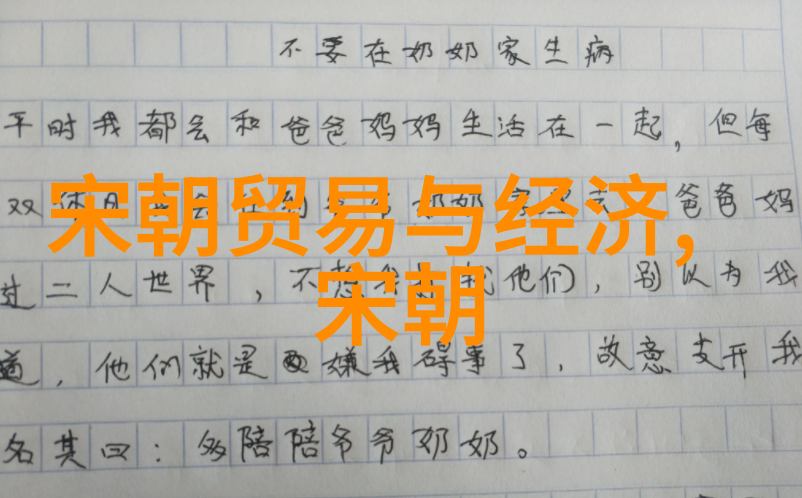 不要在奶奶家生病
平时我都会和爸爸妈妈生活在一起，但每
双休日
宋朝贸易与经济,
爸爸妈
过二人世界，不想
他们，别以为我
宋朝
道，他们就是
嫌我碍事了，故意支开我
名其曰：多陪陪爷爷奶奶。